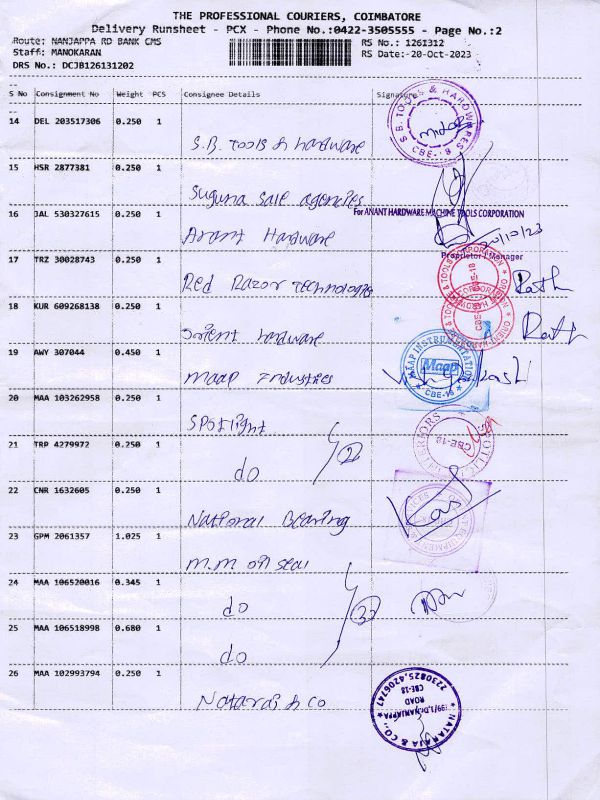 THE PROFESSIONAL COURIERS, COIMBATORE
Delivery Runsheet - PCX - Phone No.:0422-3505555 - Page No.:2
Route: NANJAPPA RD BANK CMS RS No.: 1261312
Staff: MANOKARAN RS Date:-20-Oct-2023
DRS No.: DCJB126131202
S No Consignment No Weight PCS Consignee Details Signature
14 DEL 203517306 0.250 1
S.B. Tools & hardware
S.B. TOOLS & HARDWARES CBE-
15 HSR 2877381 0.250 1
Suguna Sale agencies
16 JAL 530327615 0.250 1
For ANANT HARDWARE MACHINE TOOLS CORPORATION
Anant Hardware
20/10/23
Proprietor / Manager
17 TRZ 30028743 0.250 1
Red Razor Technologies
18 KUR 609268138 0.250 1
Orient hardware
19 AWY 307044 0.450 1
MAAP INSTRUMENTATION Maap CBE-18
Maap Industries
20 MAA 103262958 0.250 1
Spotlight
CBE-18
21 TRP 4279972 0.250 1
do
2
22 CNR 1632605 0.250 1
National Bearing
23 GPM 2061357 1.025 1
M.M oil seal
24 MAA 106520016 0.345 1
do
3
25 MAA 106518998 0.680 1
do
26 MAA 102993794 0.250 1
Nataraj & Co
NATARAJA & CO., 199/1, Dr. NANJAPPA ROAD CBE-18 2230825, 4206747